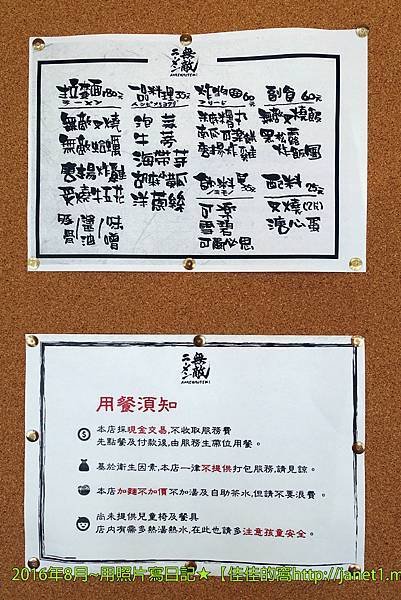 無敵
ラーメン
拉麵180元
ラーメン
無敵叉燒
無敵蛤蠣
唐揚炸雞
炙燒牛五花
豚骨/醬油/味噌
35元
泡菜
牛蒡
海帶芽
胡麻小黃瓜
洋蔥絲
炸物 60元
南瓜可樂餅
唐揚炸雞
飲料 35元
可樂
雪碧
可爾必思
副食 60元
無敵叉燒飯
黑松露
炸飯團
配料 25元
叉燒(2片)
溏心蛋
無敵
ラーメン
用餐須知
本店採現金交易,不收取服務費
先點餐及付款後,由服務生帶位用餐。
基於衛生因素,本店一律不提供打包服務,請見諒。
本店加麵不加價 不加湯及自助茶水,但請不要浪費。
尚未提供兒童椅及餐具
店內有需多熱湯熱水,在此也請多注意孩童安全。
2016年8月~用照片寫日記★【佳佳的窩http://janet1.m